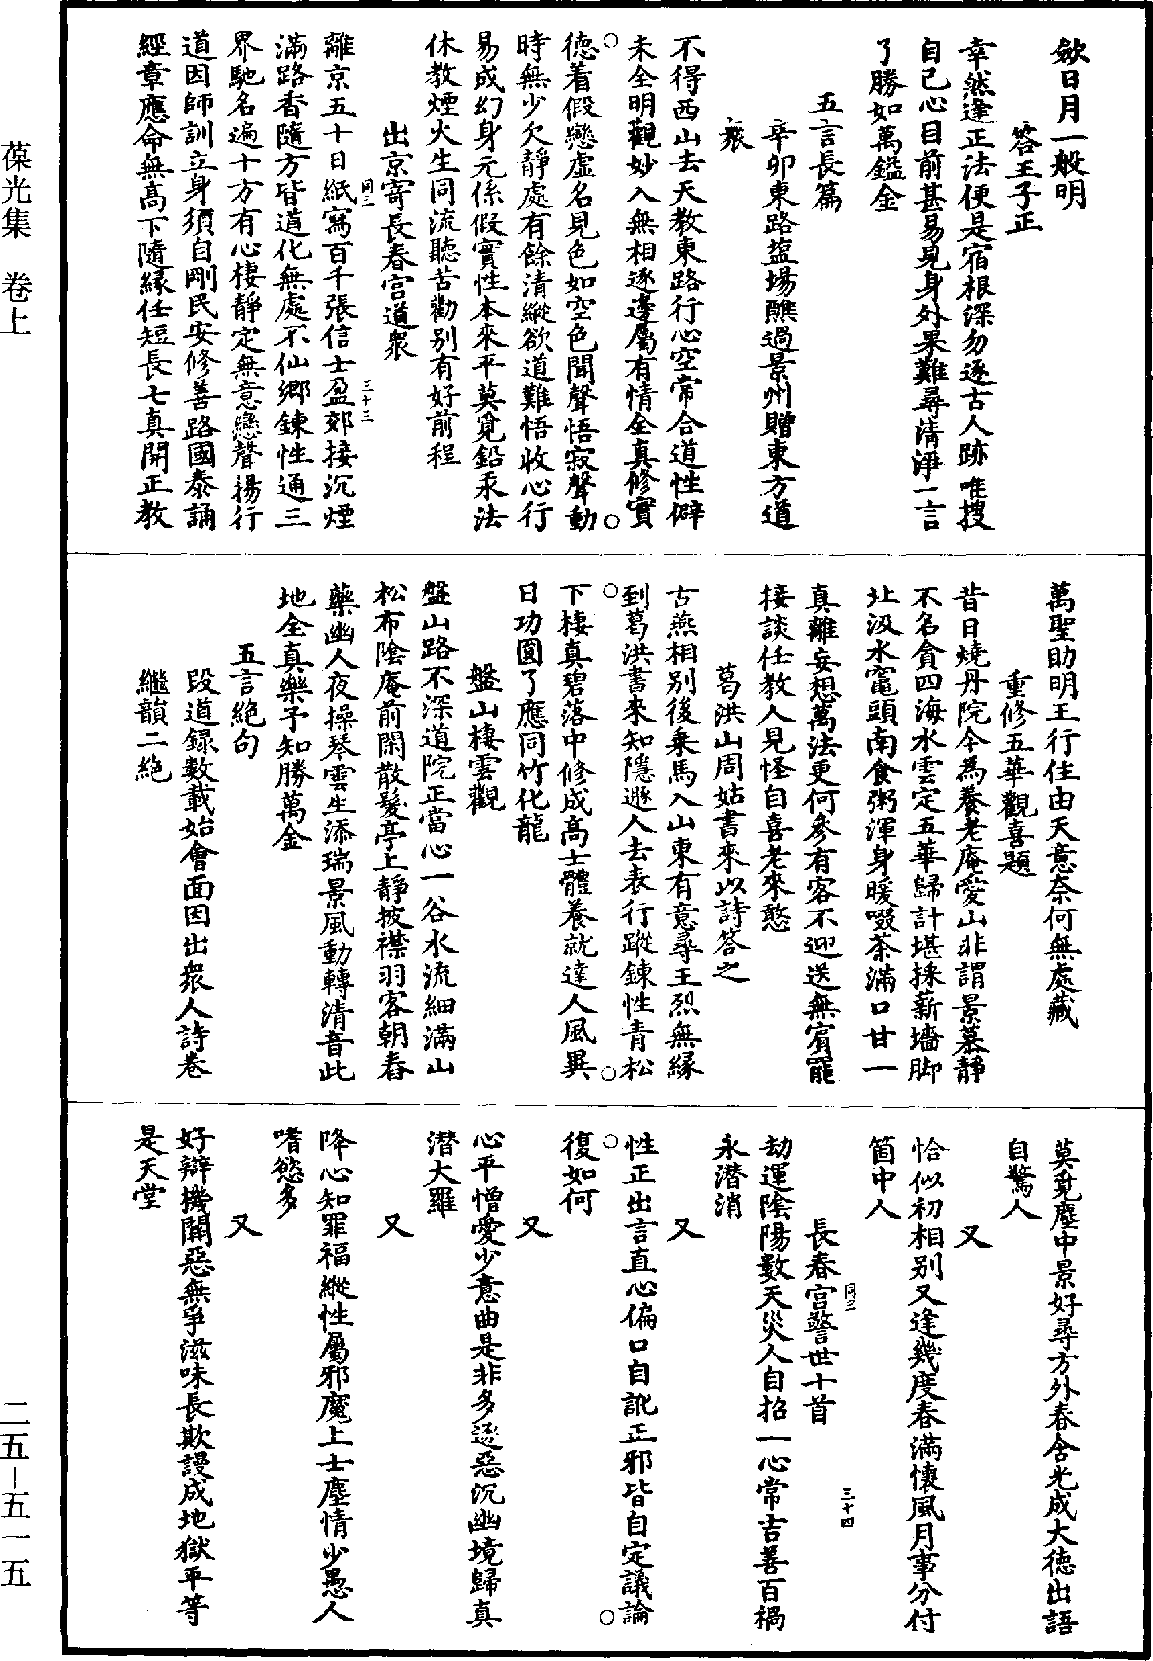 歘日月一般明
答王子正
幸然逢正法便是宿根深勿逐古人跡唯搜
自己心目前甚易見身外果難尋清淨一言
了勝如萬鎰金
五言長篇
辛卯東路鹽場醮過景州贈東方道
衆
不得西山去天教東路行心空常合道性僻
未全明觀妙入無相逐邊屬有情全真修實
德着假戀虛名見色如空色聞聲悟寂聲動
時無少欠靜處有餘清縱欲道難悟收心行
易成幻身元係假實性本來平莫覓鉛汞法
休教煙火生同流聽苦勸別有好前程
出京寄長春宮道衆
離京五十日紙寫百千張信士盈郊接沉煙
滿路香隨方皆道化無處不仙鄉鍊性通三
界馳名遍十方有心棲靜定無意戀聲揚行
道因師訓立身須自剛民安修善路國泰誦
經章應命無高下隨緣任短長七真開正教
同三
三十三
萬聖助明王行住由天意奈何無處藏
重修五華觀喜題
昔日燒丹院今為養老庵愛山非謂景慕靜
不名貪四海水雲定五華歸計堪採薪墻脚
北汲水竈頭南食粥渾身暖啜茶滿口甘一
真離妄想萬法更何參有客不迎送無賓罷
接談任教人見怪自喜老來憨
葛洪山周姑書來以詩答之
古燕相別後乘馬入山東有意尋王烈無緣
到葛洪書來知隱遯人去表行蹤鍊性青松
下棲真碧落中修成高士體養就達人風異
日功圓了應同竹化龍
盤山棲雲觀
盤山路不深道院正當心一谷水流細滿山
松布陰庵前閑散髮亭上靜披襟羽客朝舂
藥幽人夜操琴雲生添瑞景風動轉清音此
地全真樂予知勝萬金
五言絕句
段道録數載始會面因出衆人詩卷
繼韻二絕
莫覓塵中景好尋方外春含光成大德出語
自驚人
又
恰似初相別又逢幾度春滿懷風月事分付
箇中人
長春宮警世十首
同三
三十四
劫運陰陽數天災人自招一心常吉善百禍
永潜消
又
性正出言直心偏口自訛正邪皆自定議論
復如何
又
心平憎愛少意曲是非多逐惡沉幽境歸真
潜大羅
又
降心知罪福縱性屬邪魔上士塵情少愚人
嗜慾多
又
好辯機關惡無爭滋味長欺謾成地獄平等
是天堂
葆光集　卷上
二五－五一五